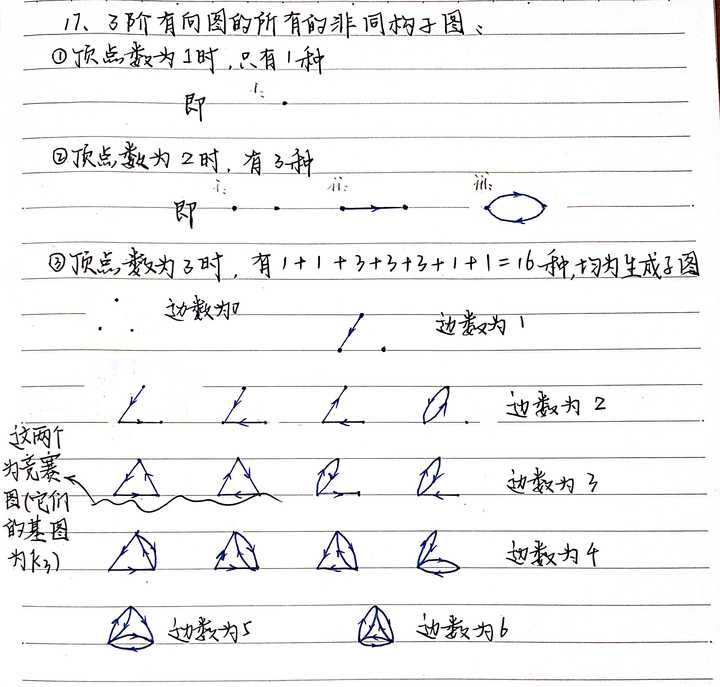 17、3阶有向图的所有的非同构子图：
①顶点数为1时，只有1种
即 i:
②顶点数为2时，有3种
即 i: ii: iii:
③顶点数为3时，有1+1+3+3+3+1+1=16种，均为生成子图
边数为0
边数为1
边数为2
这两个
为竞赛
图(它们
的基图
为K3)
边数为3
边数为4
边数为5 边数为6